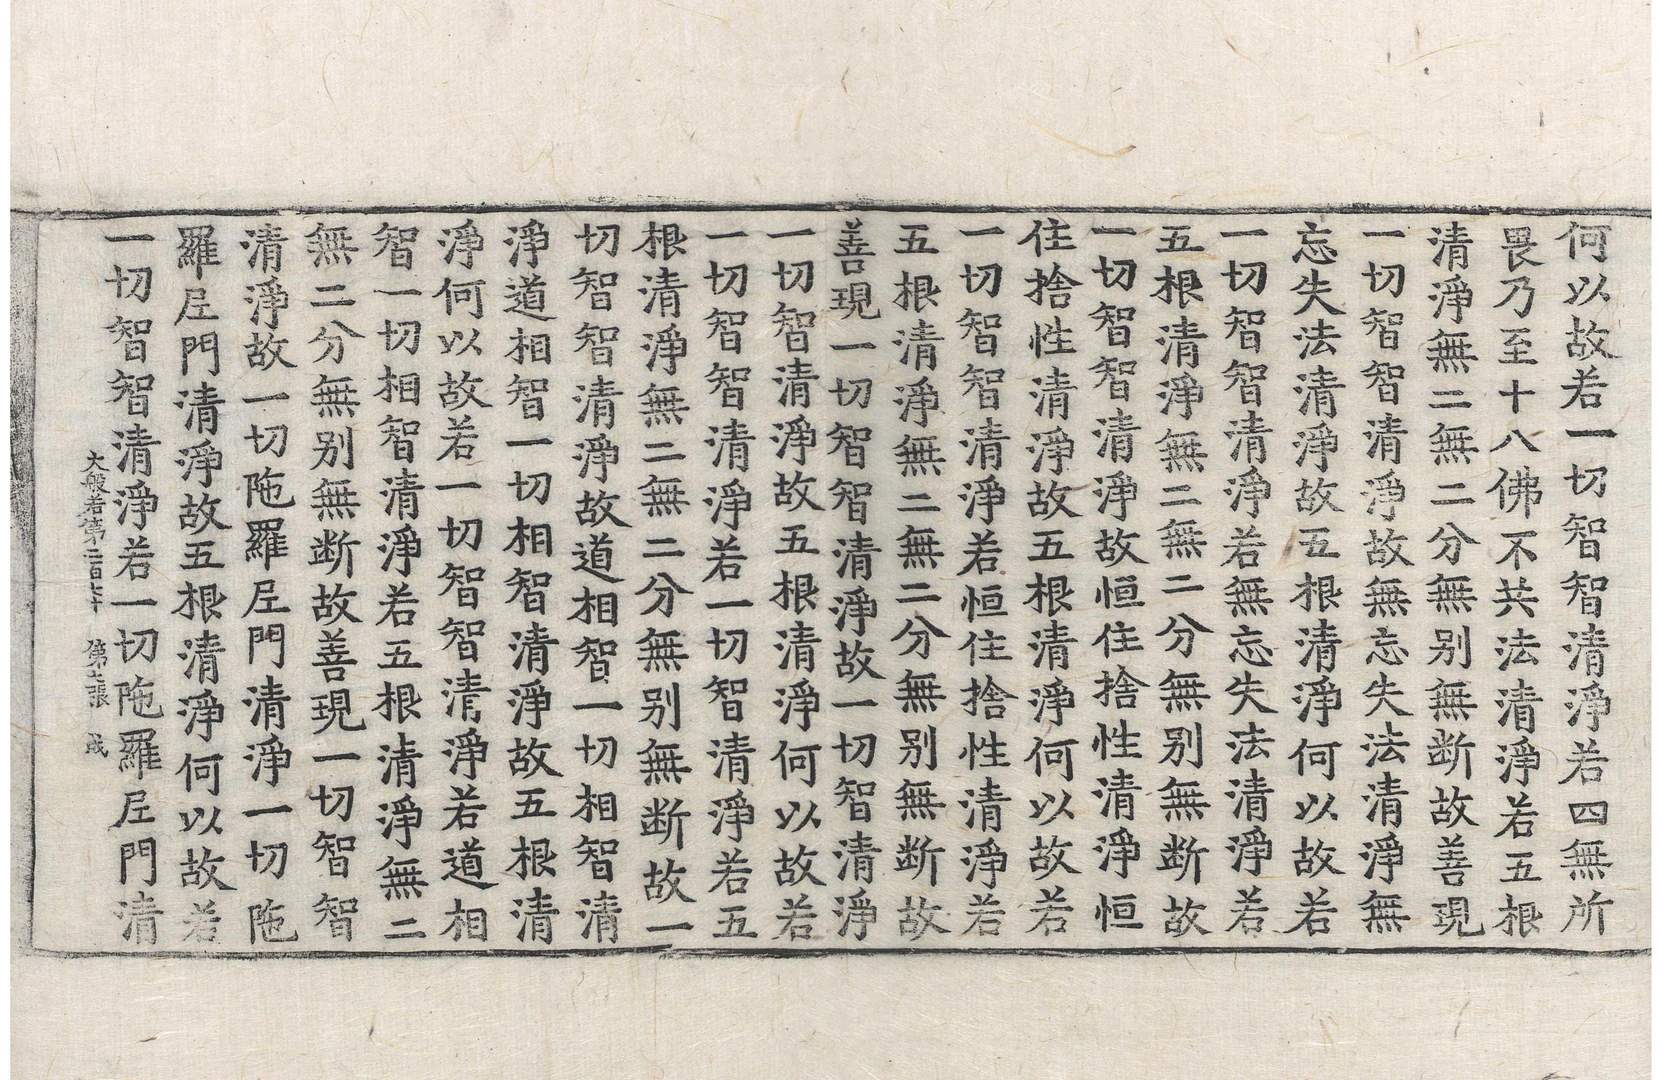 何以故若一切智智清淨若四無所
畏乃至十八佛不共法清淨若五根
清淨無二無二分無别無断故善現
一切智智清淨故無忘失法清淨無
忘失法清淨故五根清淨何以故若
一切智智清淨若無忘失法清淨若
五根清淨無二無二分無别無断故
一切智智清淨故恒住捨性清淨恒
住捨性清淨故五根清淨何以故若
一切智智清淨若恒住捨性清淨若
五根清淨無二無二分無别無断故
善現一切智智清淨故一切智清淨
一切智清淨故五根清淨何以故若
一切智智清淨若一切智清淨若五
根清淨無二無二分無别無断故一
切智智清淨故道相智一切相智清
淨道相智一切相智清淨故五根清
淨何以故若一切智智清淨若道相
智一切相智清淨若五根清淨無二
無二分無别無断故善現一切智智
清淨故一切陁羅尼門清淨一切陁
羅尼門清淨故五根清淨何以故若
一切智智清淨若一切陁羅尼門清
大般若第二百 第 張 成